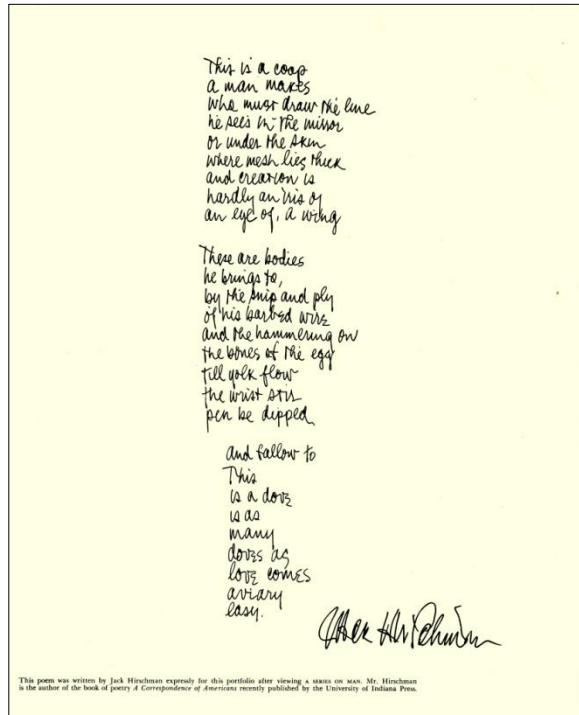 This is a coop
a man makes
who must draw the line
he sees in the mirror
or under the skin
where mesh lies thick
and creation is
hardly an iris of
an eye of, a wing
These are bodies
he brings to,
by the snip and ply
of his barbed wire
and the hammering on
the bones of the egg
till yolk flow
the wrist stir
pen be dipped
and fallow to
This
is a dove
is as
many
doves as
love comes
aviary
easy.
Jack Hirschman
This poem was written by Jack Hirschman expressly for this portfolio after viewing A SERIES ON MAN. Mr. Hirschman
is the author of the book of poetry A Correspondence of Americans recently published by the University of Indiana Press.